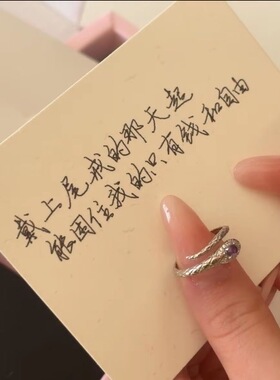 戴上尾戒的那天起
能困住我的只有钱和自由